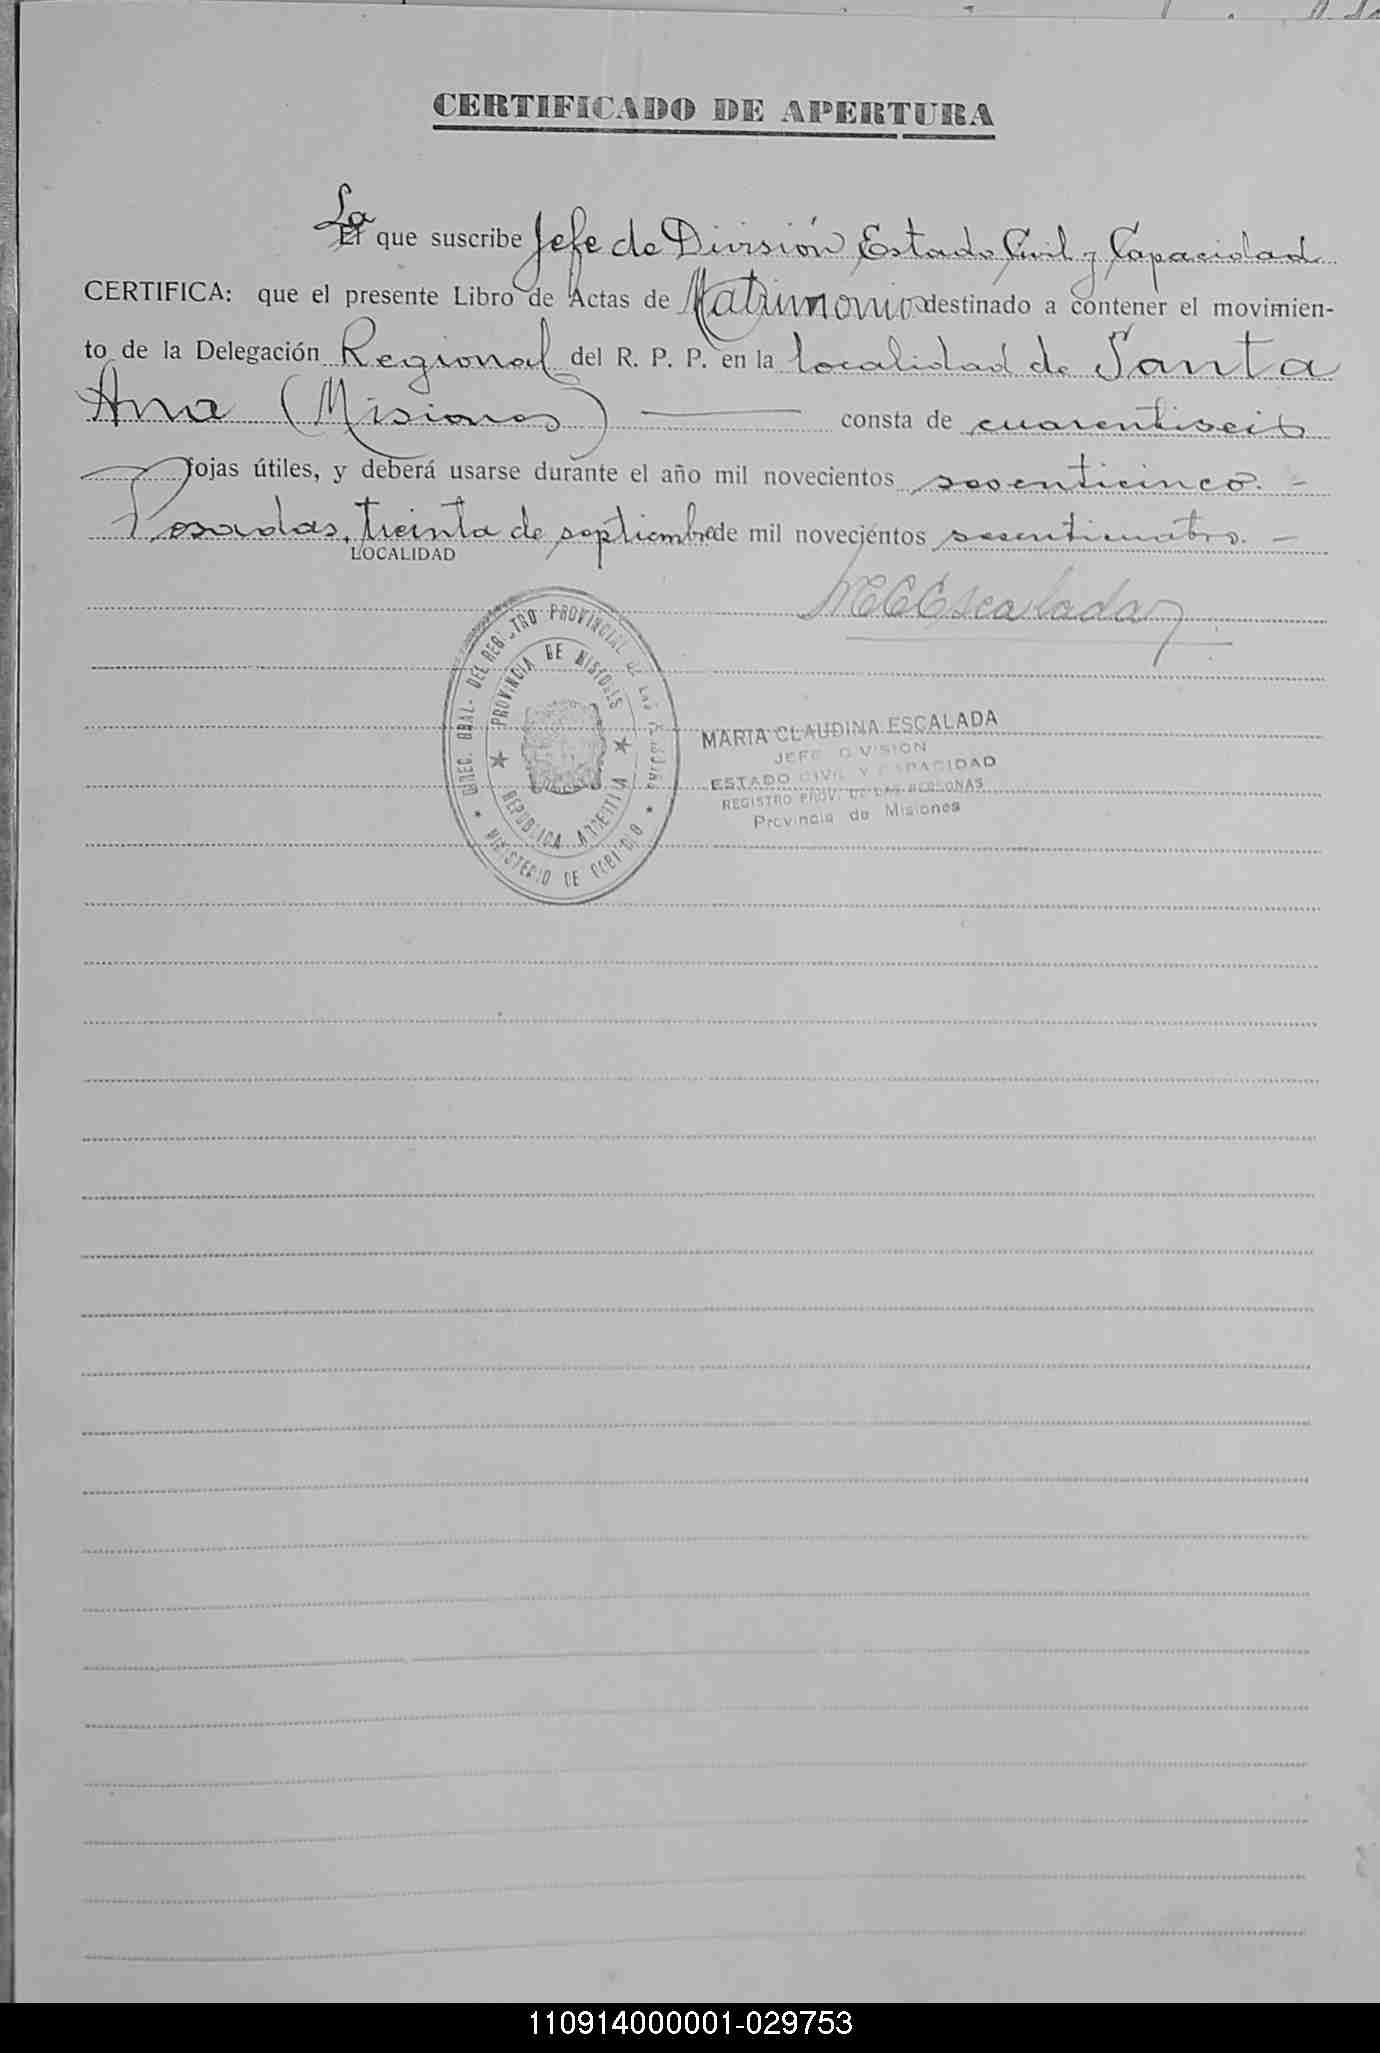 CERTIFICADO DE APERTURA
La
El que suscribe Jefe de División Estado Civil y Capacidad
CERTIFICA: que el presente Libro de Actas de Matrimonios destinado a contener el movimien-
to de la Delegación Regional del R. P. P. en la localidad de Santa
Ana (Misiones) consta de cuarentiseis
fojas útiles, y deberá usarse durante el año mil novecientos sesenticinco. -
Posadas, treinta de septiembre de mil novecientos sesenticuatro. -
LOCALIDAD
MCEscalada
DIREC. GRAL. DEL REGISTRO PROVINCIAL DE LAS PERSONAS
PROVINCIA DE MISIONES
REPUBLICA ARGENTINA
MINISTERIO DE GOBIERNO
MARIA CLAUDINA ESCALADA
JEFE DIVISION
ESTADO CIVIL Y CAPACIDAD
REGISTRO PROV. DE LAS PERSONAS
Provincia de Misiones
110914000001-029753